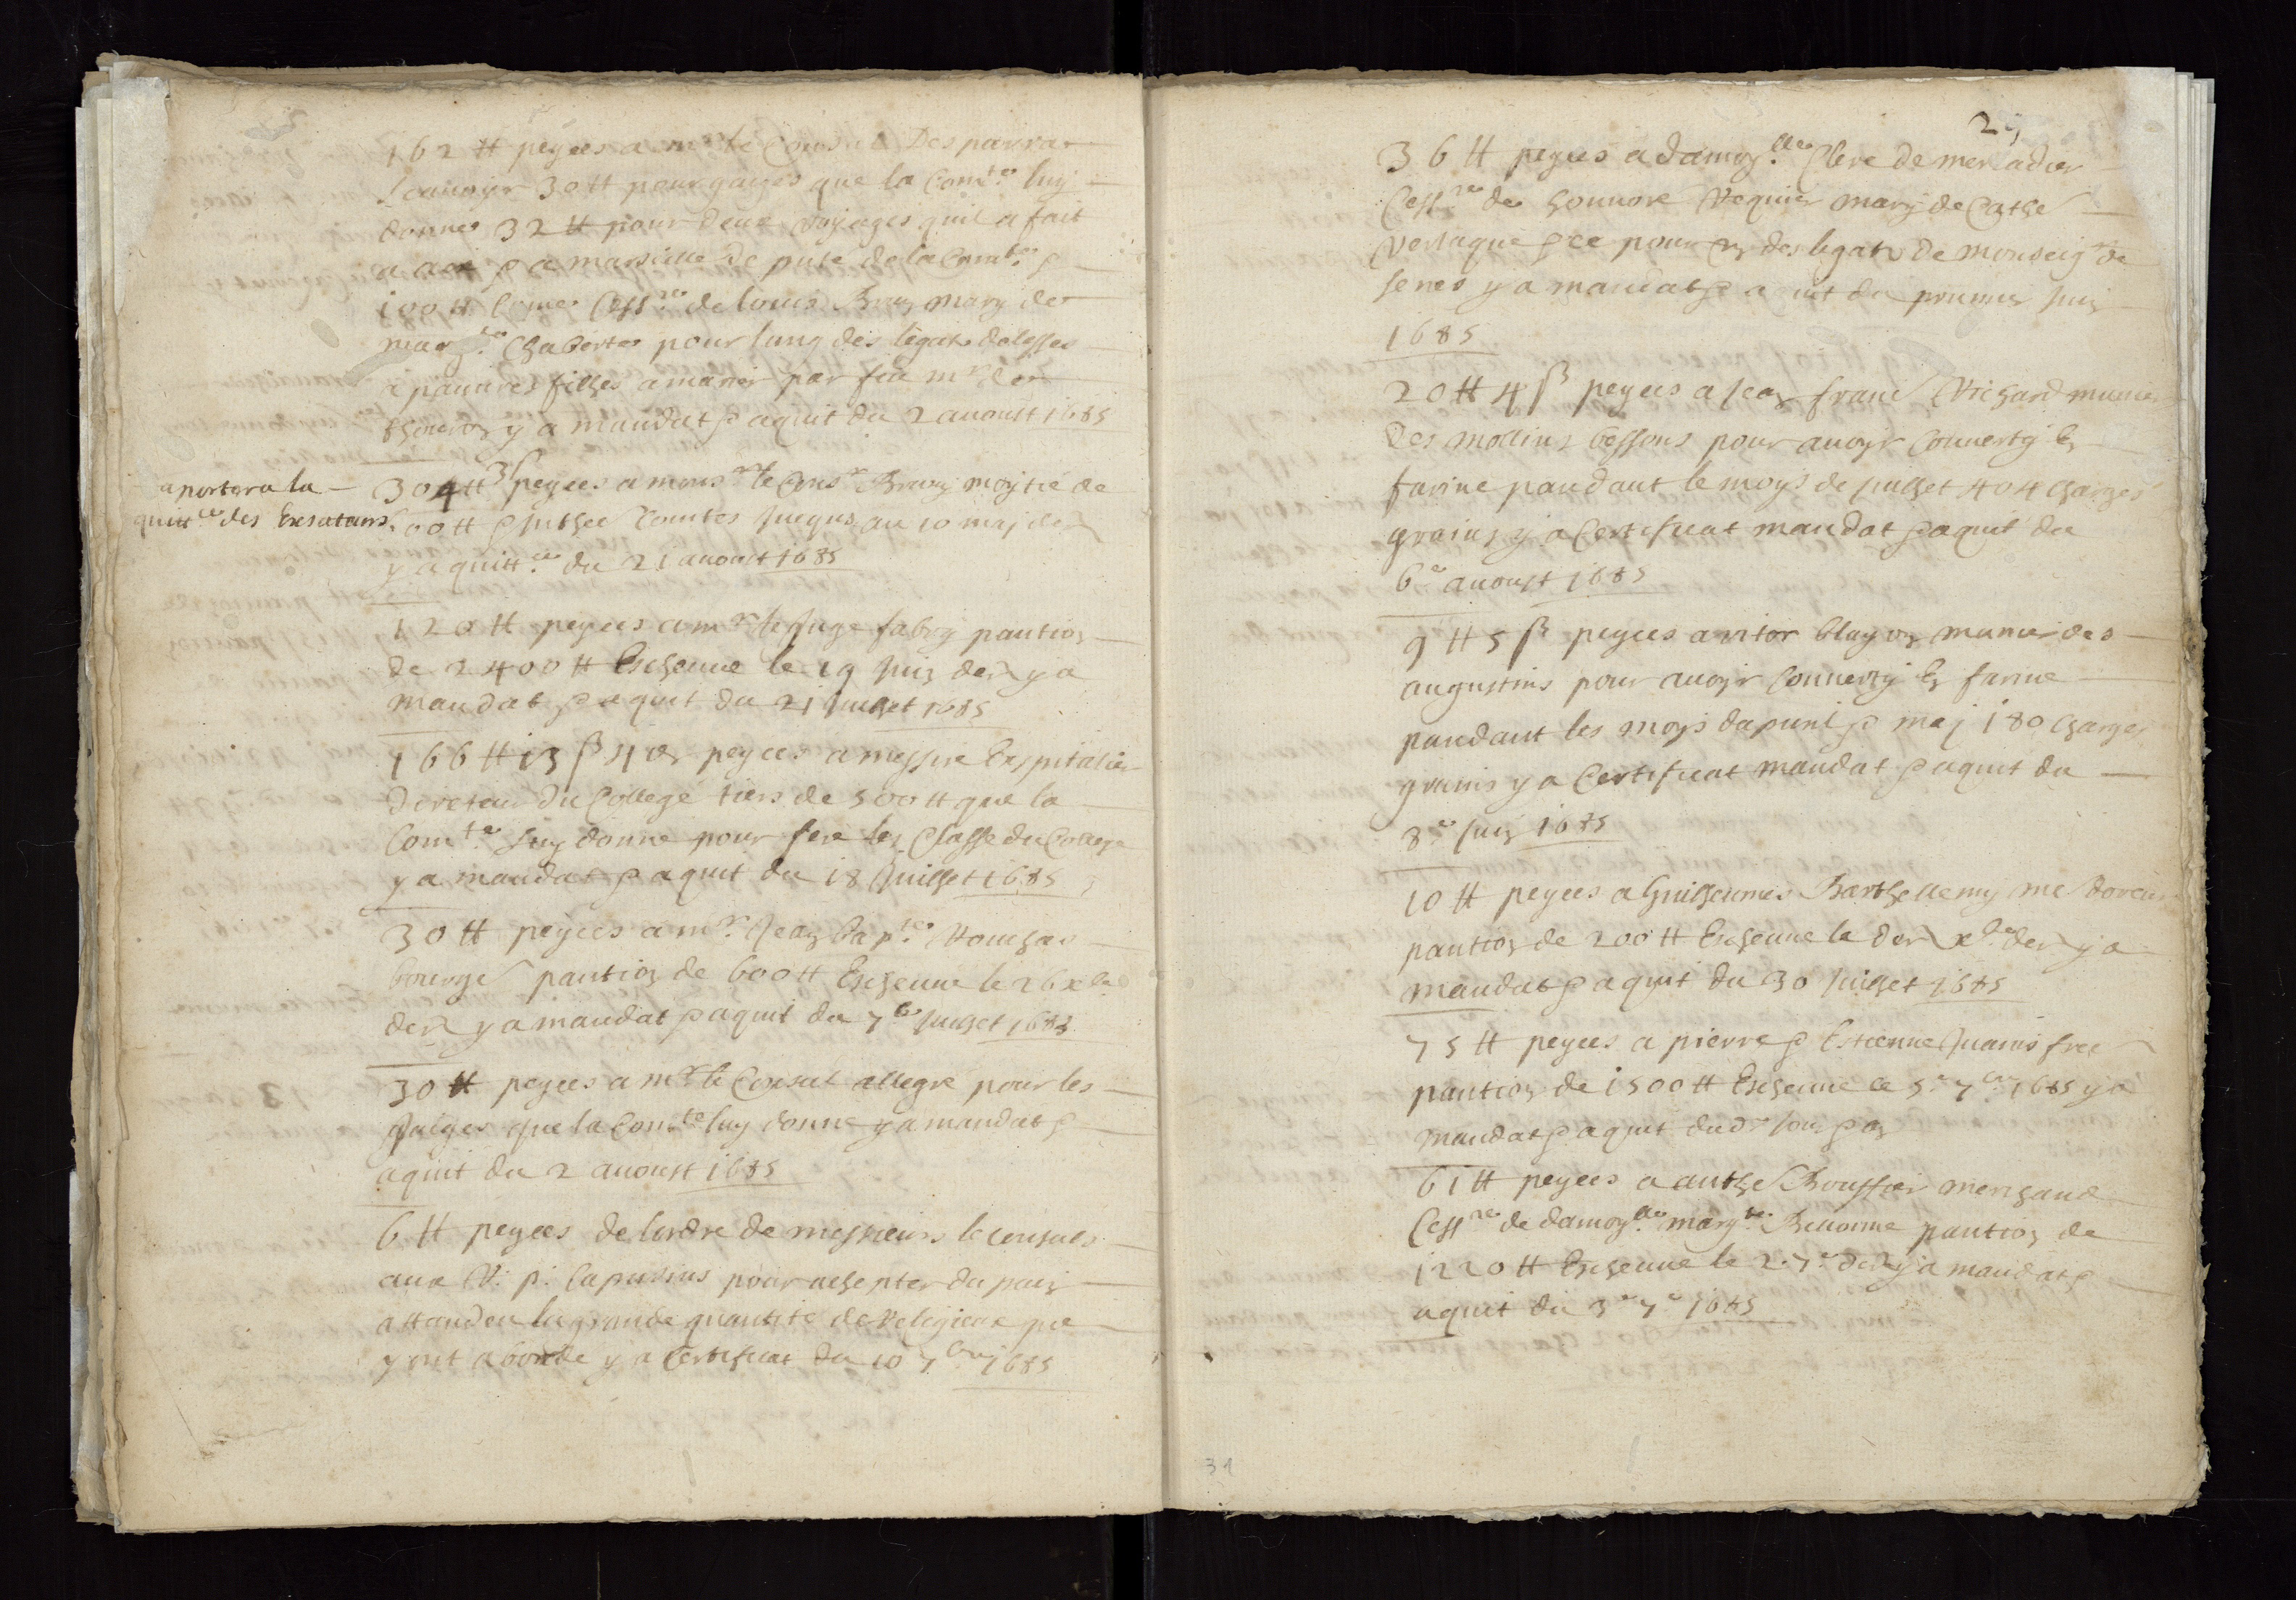 162 tt peyees a mr le Consul Desparra
scauoyr 30 tt pour gaiges que la Comte luy
donne 32 tt pour deux voyages quil a fait
a aix & a marseille depute de la Comte &
100 tt comme Cessre de louis Brun mary de
margte Chaberte pour lung des legats delesses
a pauvres filhes a marier par feu mr de
thoron y a mandat & aquit du 2 auoust 1685
a portera la
quittce des Exsatans
304 tt 3 s peyees a monsr le Consr Brun moytie de
00 tt & Inthes Comtes Juequs au 10 maj der
y a quittce du 21 auoust 1685
120 tt peyees a mr le Juge fabry pantion
de 2400 tt Escheue le 19 Juin der y a
mandat & aquit du 21 Juilhet 1685
166 tt 13 s 4 d peyees a messire Espitalier
Directeur du College tiers de 500 tt que la
Comte luy donne pour fere les Classe du College
y a mandat & aquit du 18 Juilhet 1685
30 tt peyees a mr Jean bapte
bourge pantion de 600 tt Escheue le 26 xbre
der y a mandat & aquit du 7e Juilhet 1685
30 tt peyees a mr le Consul allegre pour les
gaiges que la Comte luy donne y a mandat &
aquit du 2 auoust 1685
6 tt peyees de lordre de messieurs le consuls
aux R. p. Capusins pour achepter du pain
attandeu la grande quantite de Religieux que
y ont aborde y a Certificat du 10 7bre 1685
29
36 tt peyees a damoylle Clere de mercadier
Cessre de honnore Requier mary de Cathe
verlaque & ce pour un des legats de monseigr de
senes y a mandat & aquit du premier Juin
1685
20 tt 4 s peyees a Jean franc Richard munier
des mollins bessons pour auoyr Conuerty En
farine pandant le moys de Juilhet 404 charges
grains y a Certificat mandat & aquit du
6e auoust 1685
9 tt 5 s peyees a vitor blayon munier des
augustins pour auoyr Conuerty En farine
pandant les moys dapuril & maj 180 charges
grains y a Certificat mandat & aquit du
8e Juin 1685
10 tt peyees a Guilheumes Barthellemy me doreur
pantion de 200 tt Escheue le der xbre der y a
mandat & aquit du 30 Juilhet 1685
75 tt peyees a pierre & Estienne Juanis frer
pantion de 1500 tt Escheue le 5e 7bre 1685 y a
mandat & aquit dud Jour & an
61 tt peyees a anthe Bouffier merchand
Cessre de damoylle margte pantion de
1220 tt Escheue le 2 7e der y a mandat &
aquit du 3e 7e 1685
34